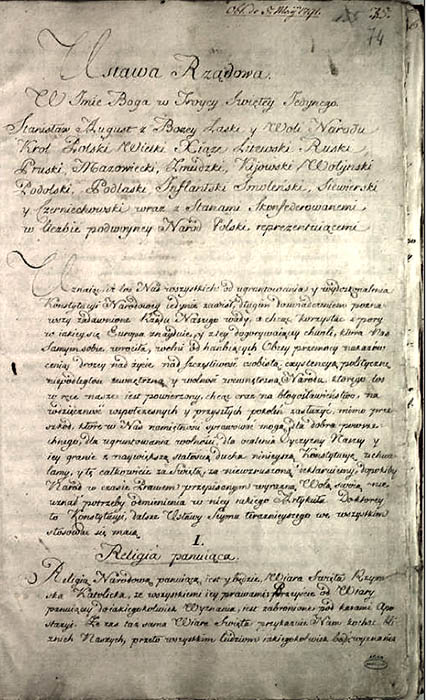 Obl. de 5. Maij 1791.
74
Ustawa Rządowa.
W Imie Boga w Troycy Swiętey Jedynego.
Stanisław August z Bożey Łaski y Woli Narodu
Krol Polski Wielki Xiąże Litewski Ruski
Pruski, Mazowiecki, Żmudzki, Kijowski Wołyński
Podolski, Podlaski Inflantski Smoleński, Siewierski
y Czerniechowski wraz z Stanami Skonfederowanemi
w liczbie podwoyney Narod Polski reprezentuiącemi
Uznaiąc iż los Nas wszystkich od ugruntowania y wydoskonalenia
Konstytucyi Narodowey iedynie zawisł, długim doswiadczeniem pozna-
wszy zadawnione Rządu Naszego wady, a chcąc korzystać z pory
w iakiey się Europa znayduie, y z tey dogorywaiącey chwili, ktora Nas
samym sobie wrociła, wolni od hańbiących Obcey przemocy nakazow
ceniąc drożey nad życie nad szczęśliwość osobistą exystencyą polityczną
niepodległość zewnętrzną y wolność wewnętrzną Narodu, ktorego los
w ręce nasze iest powierzony, chcąc oraz na błogosławieństwo, na
wdzięczność wspołczesnych y przyszłych pokoleń zasłużyć, mimo prze-
szkod, ktore w Nas namiętności sprawować mogą dla dobra powsze-
chnego dla ugruntowania wolności dla ocalenia Oyczyzny Naszey y
iey granic z naywiększą stałością ducha ninieyszą Konstytucyę uchwa-
lamy, y tę całkowicie za świętą, za niewzruszoną deklaruiemy, dopokiby
Narod w czasie Prawem przepisanym wyraźną Wolą swoią nie
uznał potrzeby odmienienia w niey iakiego Artykułu. Do ktorey
to Konstytucyi, dalsze Ustawy Seymu teraznieyszego we wszystkim
stosować się maią.
I.
Religia panuiąca.
Religią Narodową panuiącą, iest y będzie, Wiara Swięta Rzym-
ska Katolicka, ze wszystkiemi iey prawami, przeyście od Wiary
panuiącey do iakiegokolwiek Wyznania, iest zabronione pod karami Apo-
stazyi. Że zaś ta sama Wiara Swięta przykazuie Nam kochać bli-
źnich Naszych, przeto wszystkim ludziom iakiegokolwiek bądź wyznania